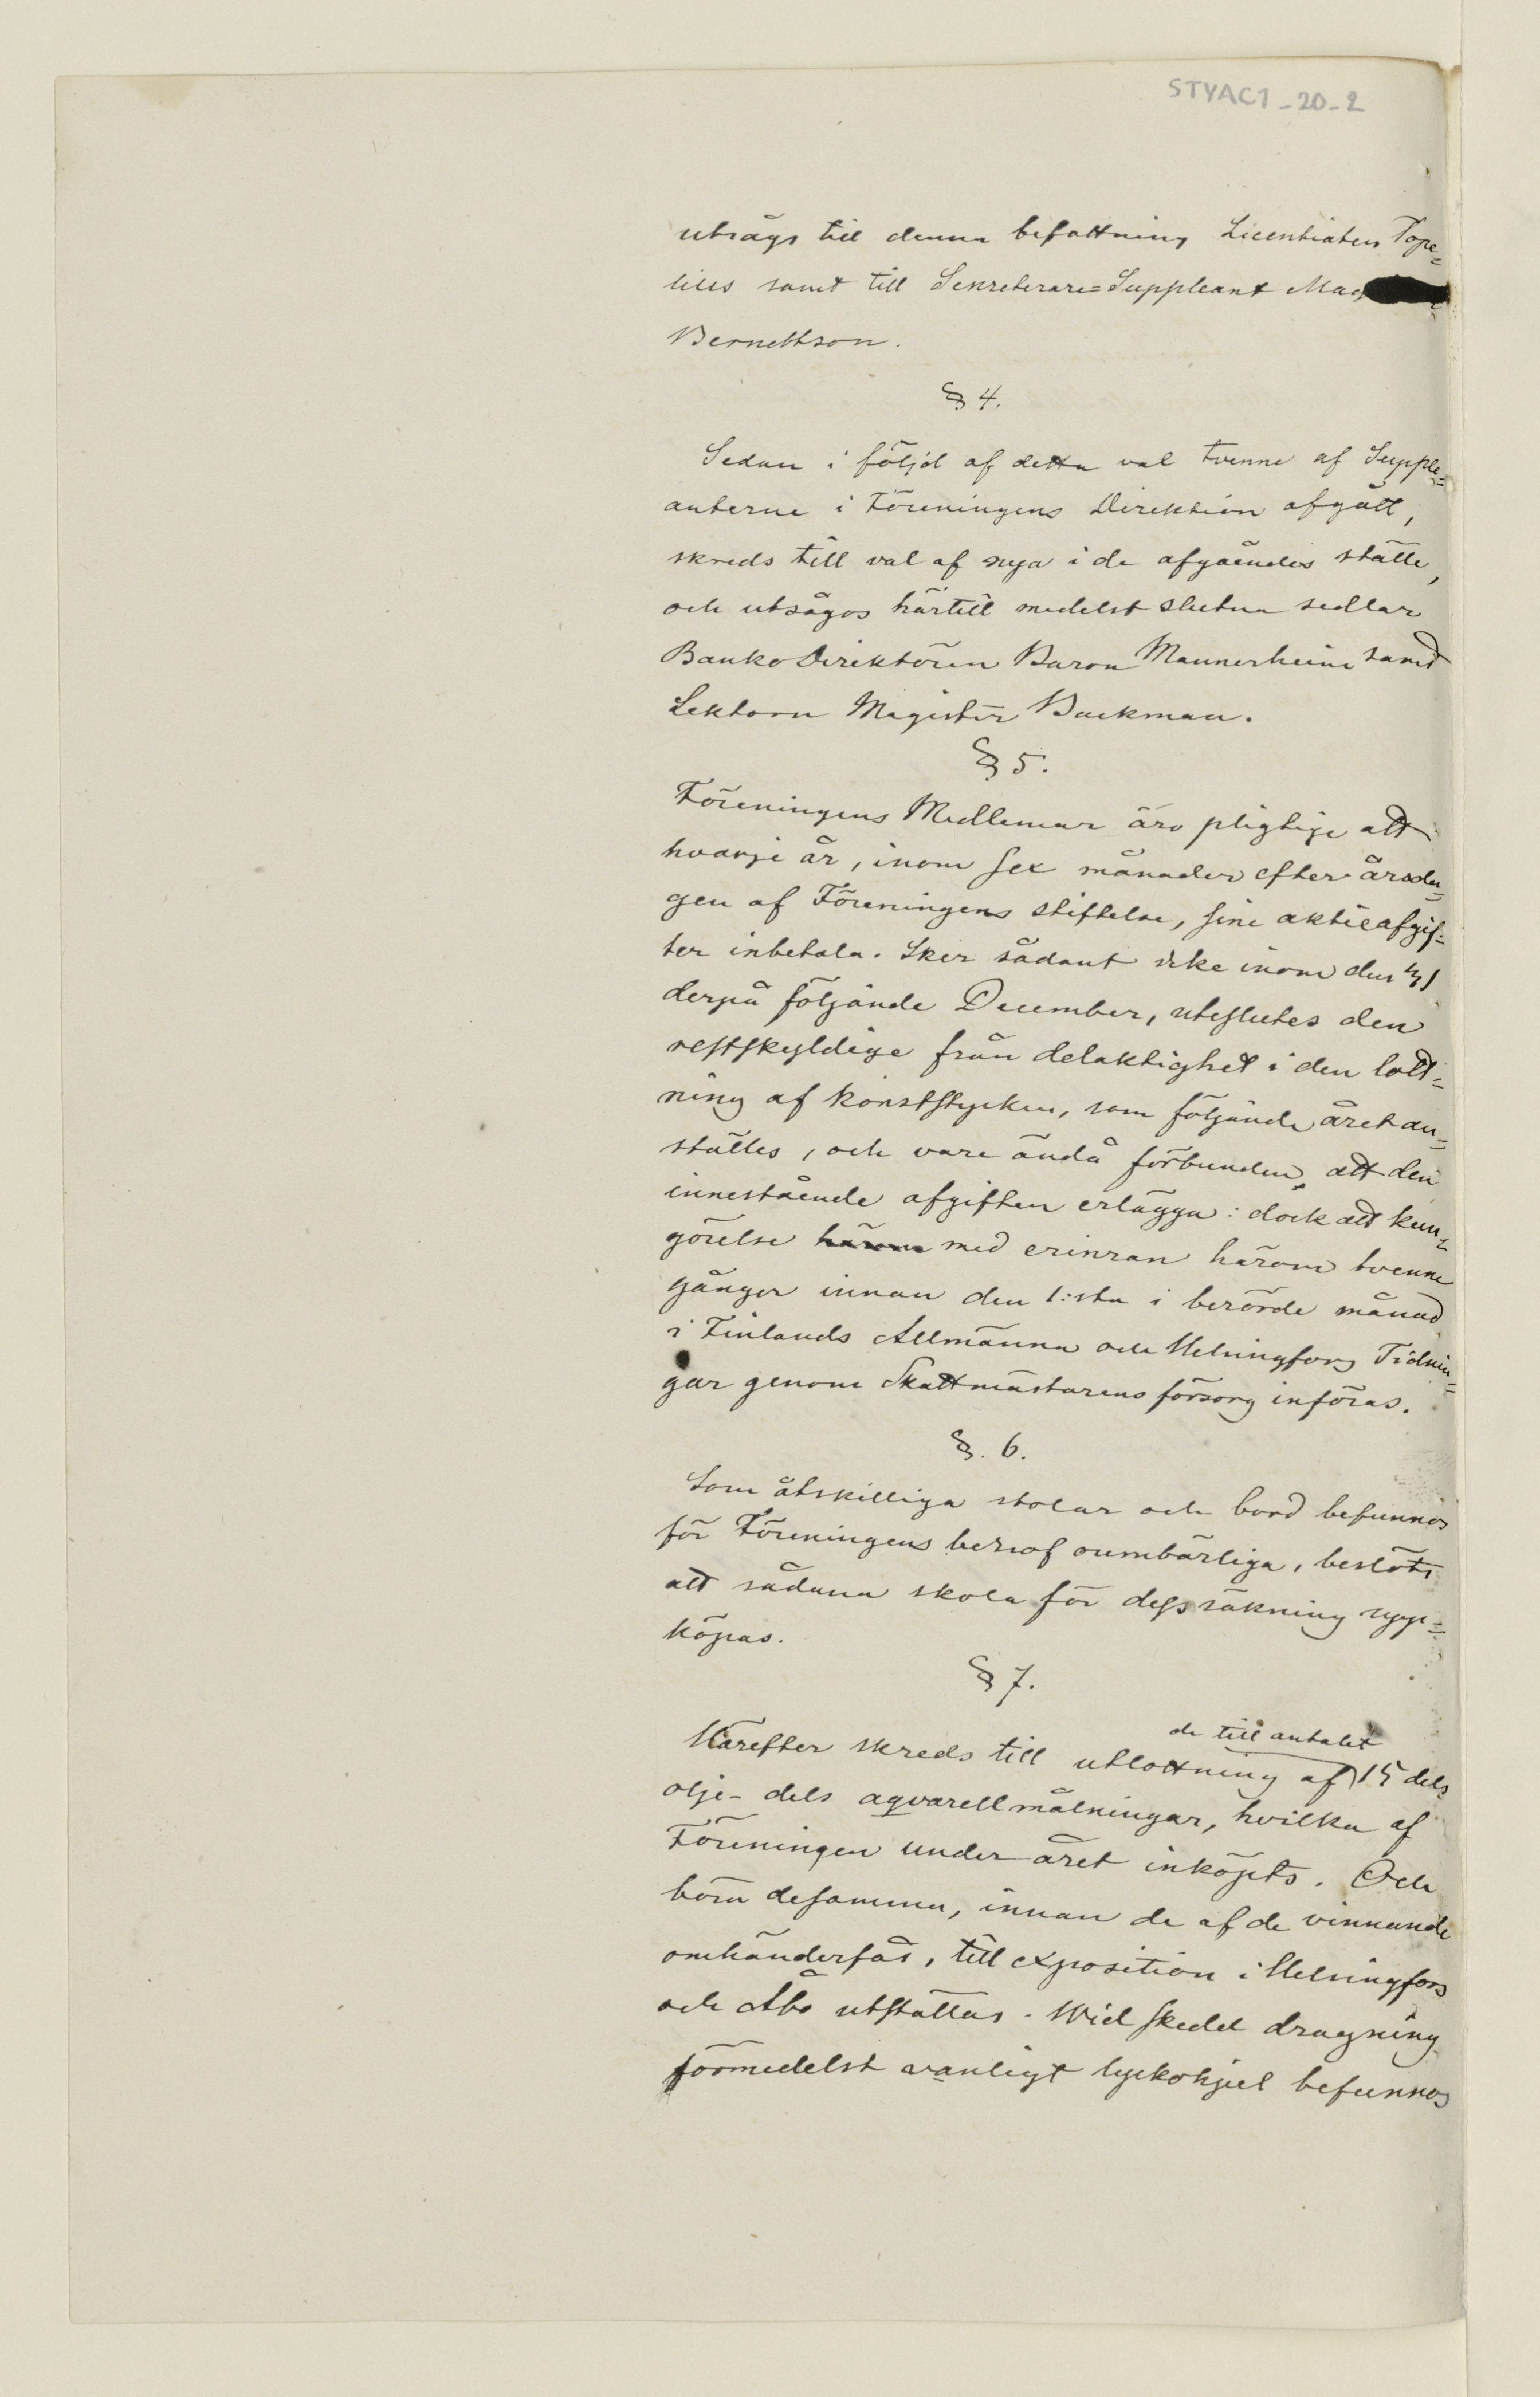 STYAC1_20_2
utsågs till denna befattning Licentiaten Tope=
lius samt till Sekreterare=Suppleant Mag
Berndtson.
§ 4.
Sedan i följd af detta val tvenne af Supple=
anterne i Föreningens Direktion afgått,
skreds till val af nya i de afgåendes ställe,
och utsågos härtill medelst slutna sedlar
Banko Direktören Baron Mannerheim samt
Lektorn Magister Backman.
§ 5.
Föreningens Medlemmar äro pligtige att
hvarje år, inom sex månader efter årsda=
gen af Föreningens stiftelse, sine aktieafgif=
ter inbetala. Sker sådant icke inom den
derpå följande December, uteslutes den
restskyldige från delaktighet i den lott=
ning af konststycken, som följande året an=
ställes, och vare ändå förbunden, att den
innestående afgiften erlägga: dock att kun=
görelse härom med erinran härom tvenne
gånger innan den 1:sta i berörde månad
i Finlands Allmänna och Helsingfors Tidnin=
gar genom Skattmästarens försorg införas.
§. 6.
Som åtskilliga stolar och bord befunnos
för Föreningens behof oumbärliga, beslöts
att sådana skola för dess räkning upp=
köpas.
§ 7.
de till antalet
Härefter skreds till utlottning af 15 dels
olje- dels aqvarellmålningar, hvilka af
Föreningen under året inköpts. Och
böra desamma, innan de af de vinnande
omhänderfås, till exposition i Helsingfors
och Åbo utställas. Wid skedd dragning
förmedelst vanligt lyckohjul befunnos